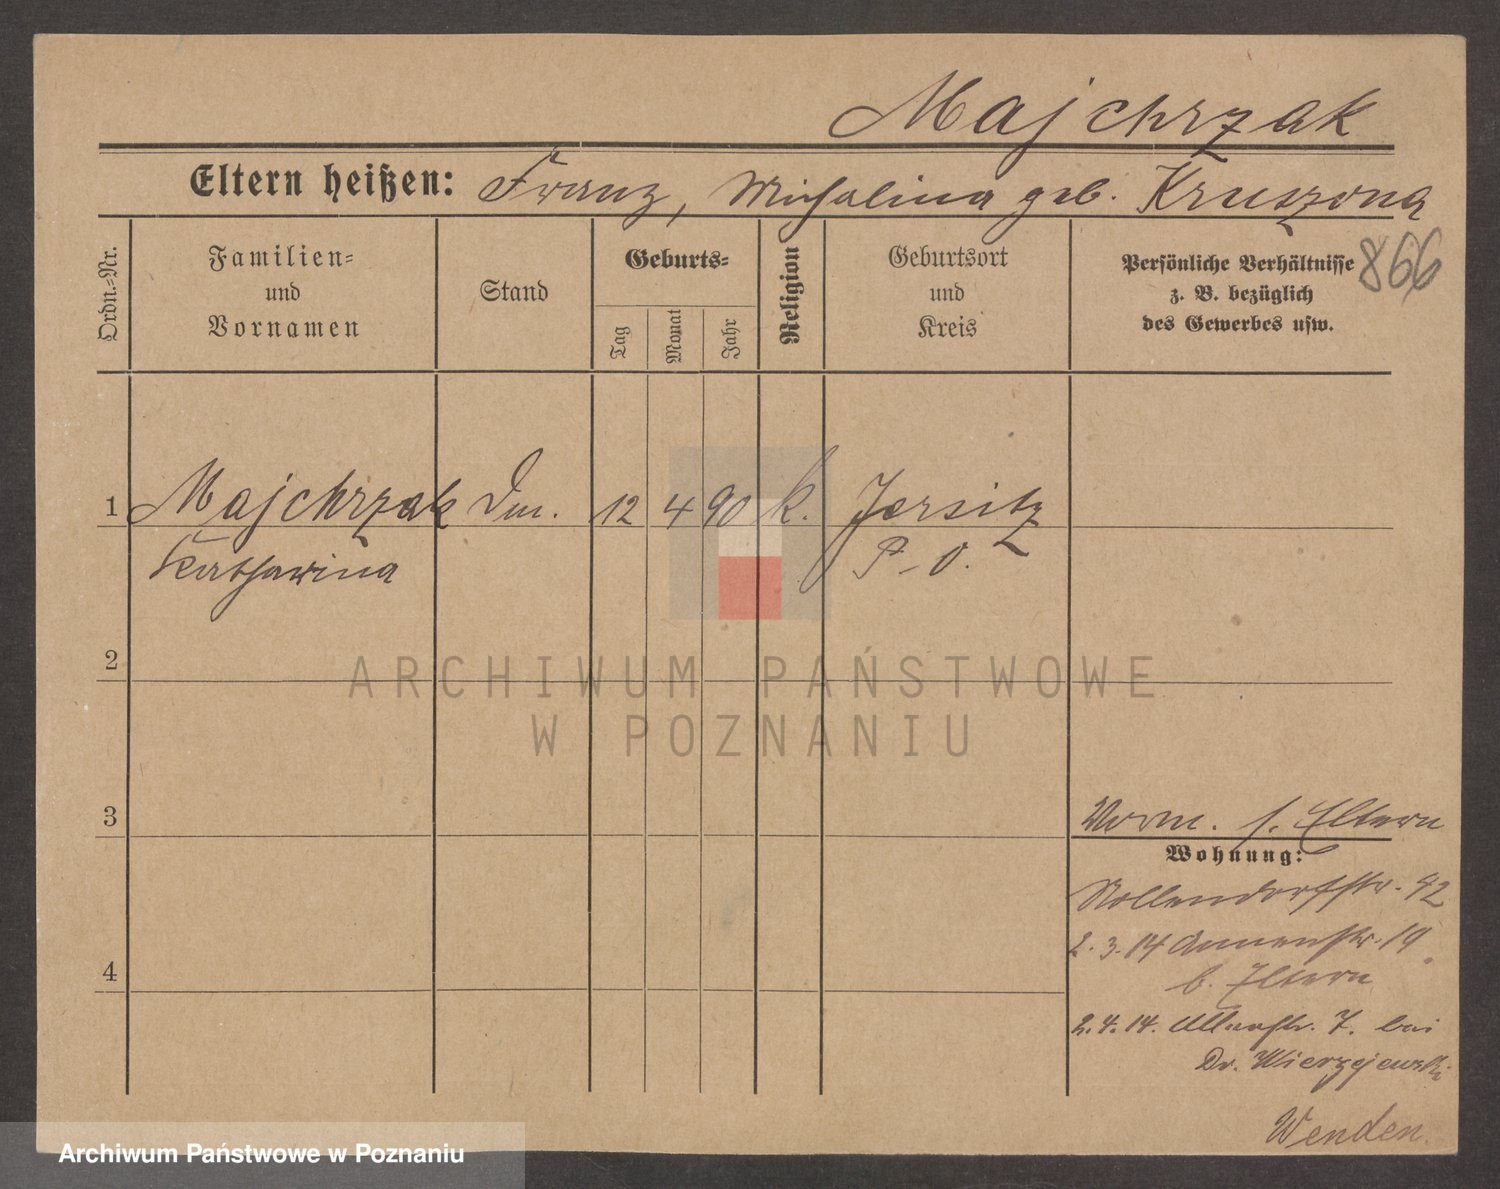 Majchrzak
Eltern heißen: Franz, Michalina geb. Kruszona
866
Ordn.-Nr.
Familien-
und
Vornamen
Stand
Geburts-
Tag
Monat
Jahr
Religion
Geburtsort
und
Kreis
Persönliche Verhältnisse
z. B. bezüglich
des Gewerbes usw.
1 Majchrzak 12 4 90 k. Jersitz
Katharina P. O.
2
3
4
s. Eltern
Wohnung:
Nollendorfstr. 42
2.3.14 Annenstr. 19
b. Eltern
2.4.14. 7. bei
Dr. Wierzejewski
Wenden.
ARCHIWUM PAŃSTWOWE
W POZNANIU
Archiwum Państwowe w Poznaniu